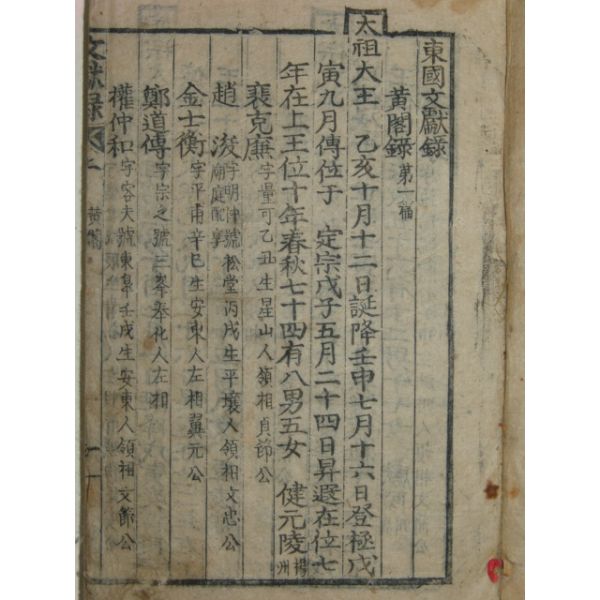 東國文獻錄
黃閣錄 第一編
太祖大王 乙亥十月十二日誕降壬申七月十六日登極戊
寅九月傳位于 定宗戊子五月二十四日昇遐在位七
年在上王位十年春秋七十四有八男五女 健元陵 楊州
裴克廉 字量可乙丑生星山人領相貞節公
趙浚 字明仲號松堂丙戌生平壤人領相文忠公
廟庭配享
金士衡 字平甫辛巳生安東人左相翼元公
鄭道傳 字宗之號三峯奉化人左相
權仲和 字容夫號東皐壬戌生安東人領相文節公
文獻錄 上 黃閣 一